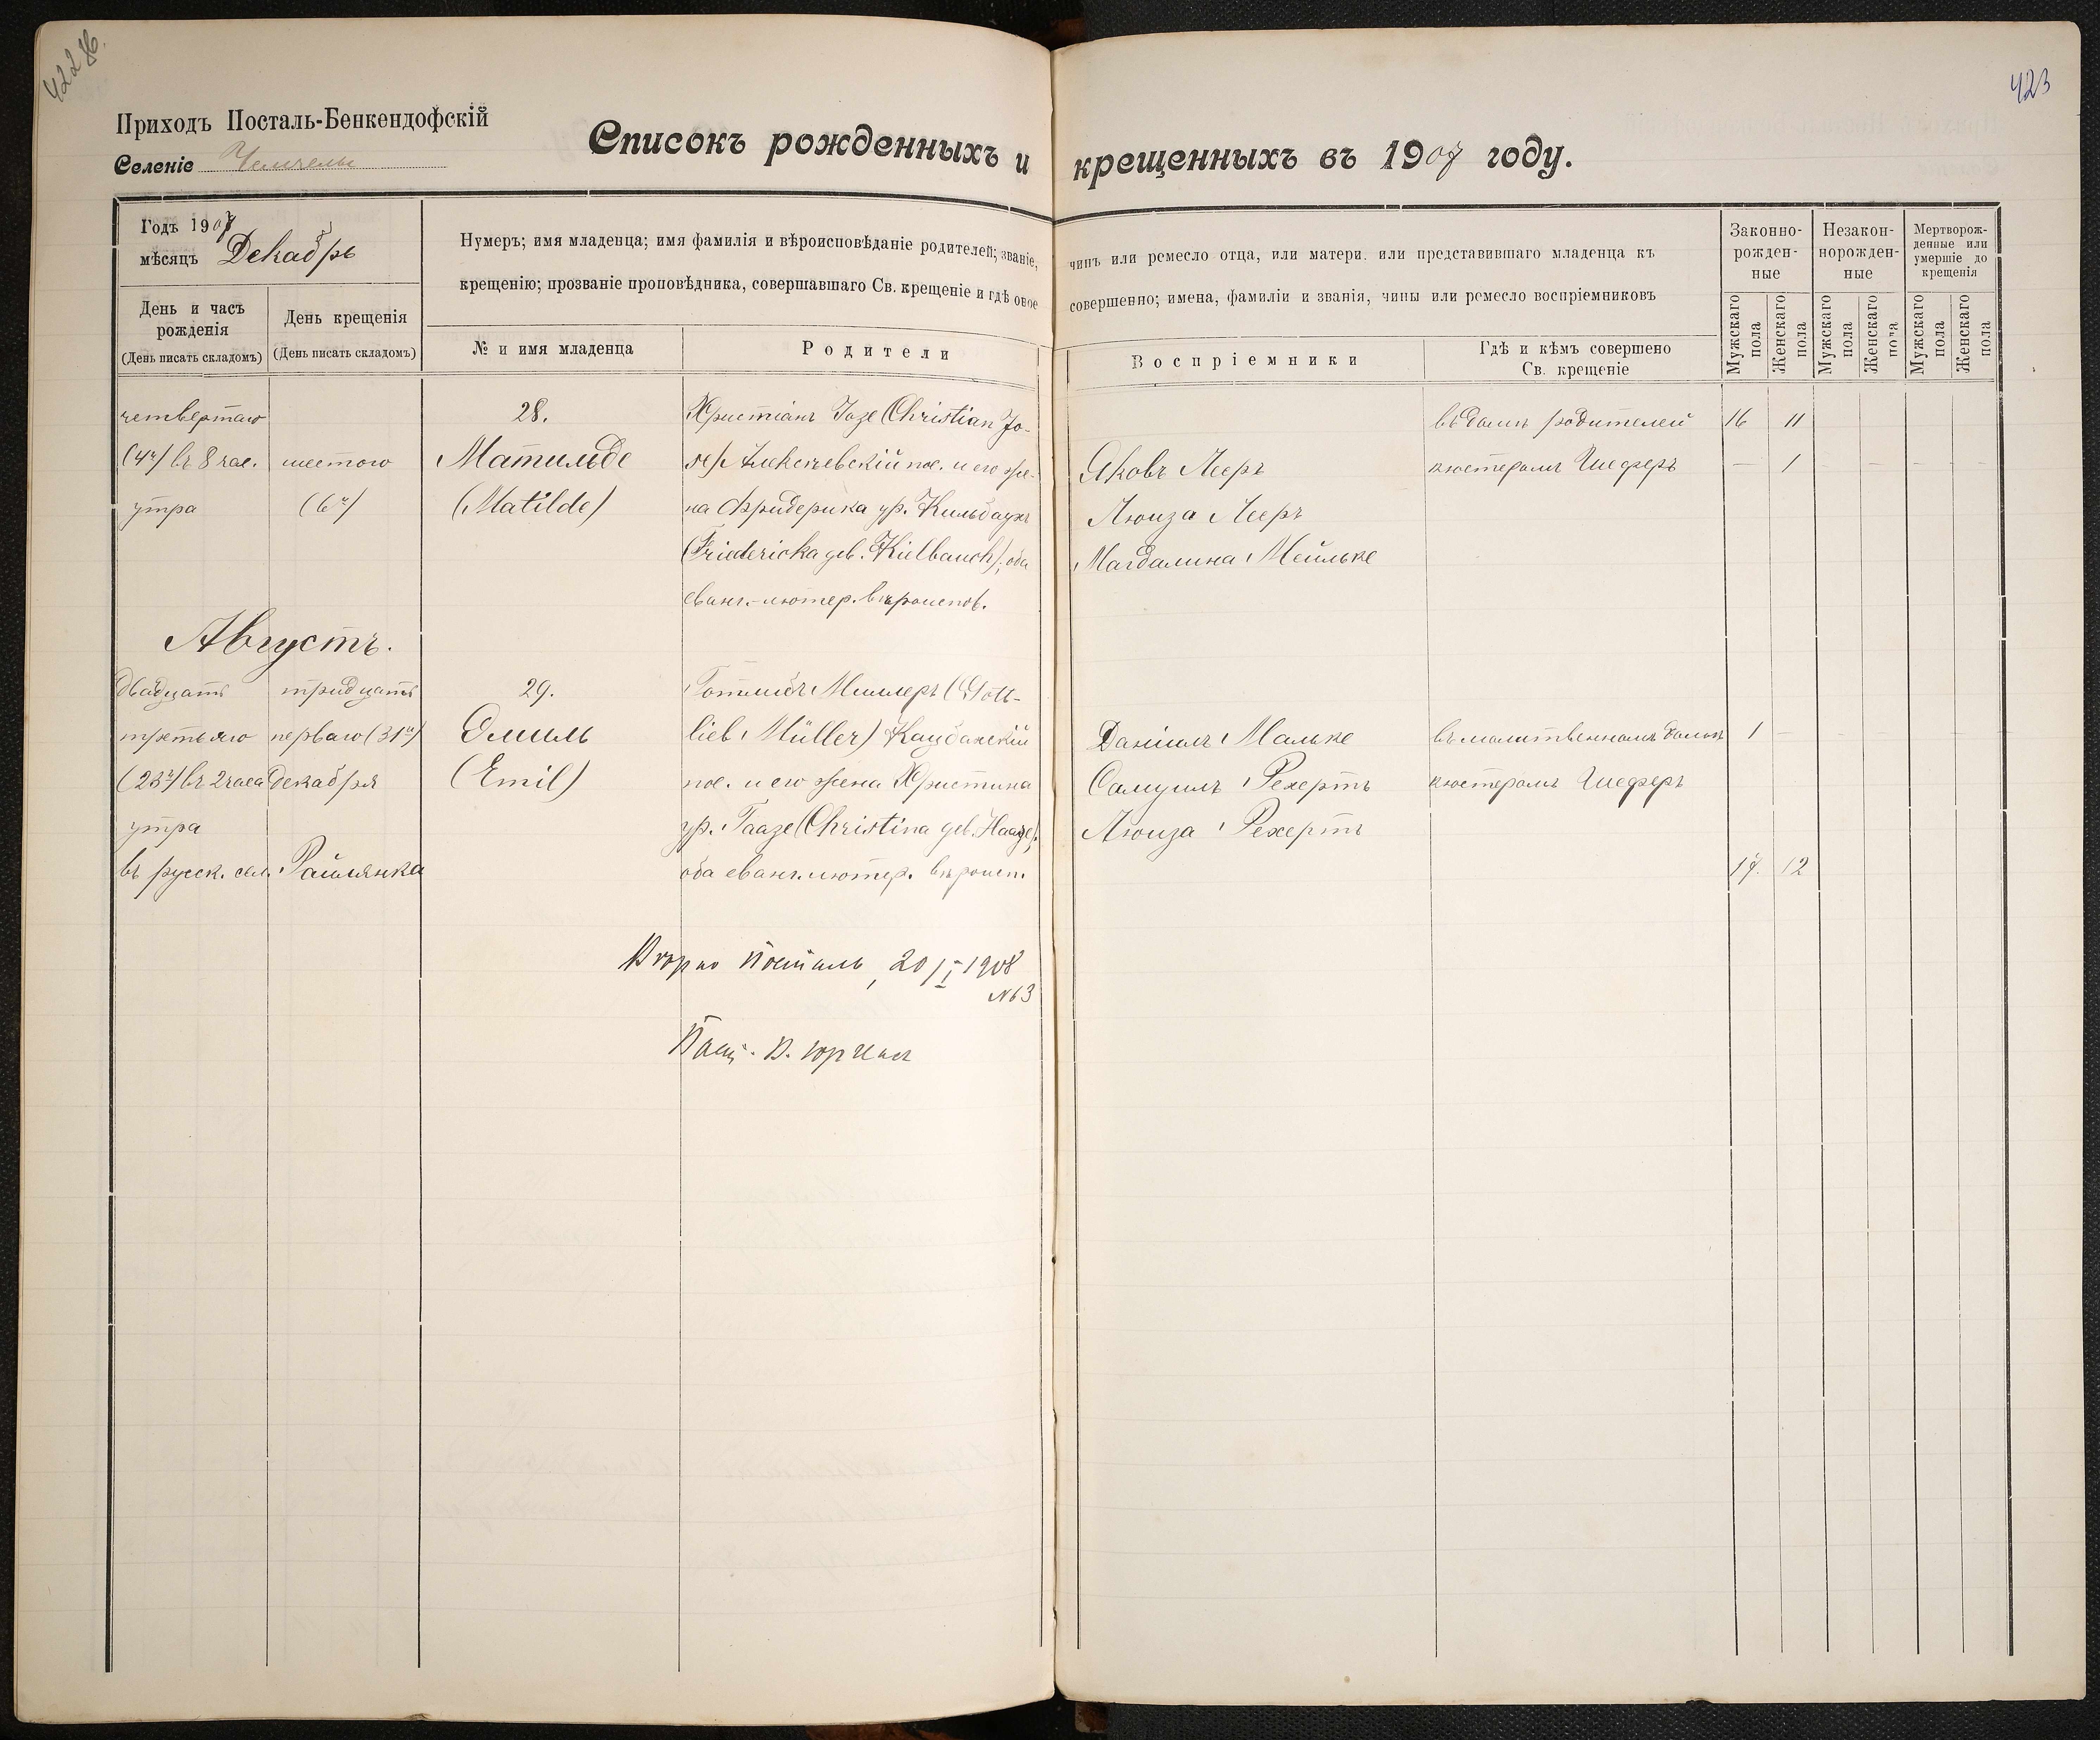 422 об.
423
Приходъ Посталь-Бенкендофскій
Селеніе Чемчелы
Списокъ рожденныхъ и крещенныхъ въ 1907 году.
Годъ 1907
мѣсяцъ Декабрь
День и часъ рожденія
(День писать складомъ)
День крещенія
(День писать складомъ)
Нумеръ; имя младенца; имя фамилія и вѣроисповѣданіе родителей; званіе, чинъ или ремесло отца, или матери. или представившаго младенца къ
крещенію; прозваніе проповѣдника, совершавшаго Св. крещеніе и гдѣ оное совершенно; имена, фамиліи и званія, чины или ремесло воспріемниковъ
№ и имя младенца
Родители
Воспріемники
Гдѣ и кѣмъ совершено
Св. крещеніе
Законно-
рожден-
ные
Незакон-
норожден-
ные
Мертворож-
денные или
умершіе до
крещенія
Мужскаго пола
Женскаго пола
Мужскаго пола
Женскаго пола
Мужскаго пола
Женскаго пола
четвертаго
(4го) въ 8 час.
утра
шестого
(6го)
28.
Матильде
(Matilde)
Христіанъ Іозе (Christian Jo-
se) Алексѣевскій пос. и его же-
на Фридерика ур. Кильбаухъ
(Friedericka geb. Kielbauch), оба
еванг.-лютер. вѣроиспов.
Яковъ Лееръ
Люиза Лееръ
Магдалина Мейльке
въ домѣ родителей
кюстеромъ Шеферъ
16 11
— 1 — — — —
Августъ.
двадцать
третьяго
(23го) въ 2 часа
утра
въ русск. сел. Райлянка
тридцать
перваго (31го)
Декабря
29.
Эмиль
(Emil)
Готлибъ Миллеръ (Gott-
lieb Müller) Каубанскій
пос. и его жена Христина
ур. Гаазе (Christina geb. Haase),
оба еванг. лютер. вѣроисп.
Даніилъ Мальке
Самуилъ Рехертъ
Люиза Рехертъ
въ молитвенномъ домѣ
кюстеромъ Шеферъ
1 — — — — —
17. 12
Вѣрно Посталь, 20/I 1908
№ 63
Паст.